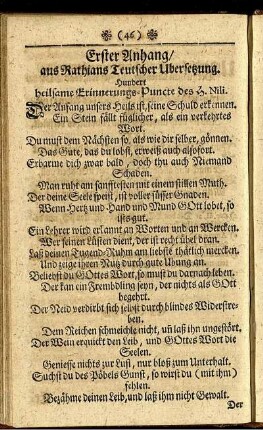 (46)
Erster Anhang/
aus Rathians Teutscher Ubersetzung.
Hundert
heilsame Erinnerungs-Puncte des H. Nili.
Der Anfang unsers Heils ist, seine Schuld erkennen.
Ein Stein fällt füglicher, als ein verkehrtes
Wort.
Du must dem Nächsten so, als wie dir selber, gönnen.
Das Gute, das du lobst, erweiß auch alsofort.
Erbarme dich zwar bald, doch thu auch Niemand
Schaden.
Man ruht am sanfftesten mit einem stillen Muth.
Der deine Seele speist, ist voller süsser Gnaden.
Wenn Hertz und Hand und Mund GOtt lobet, so
ists gut.
Ein Lehrer wird erkannt an Worten und an Wercken.
Wer seinen Lüsten dient, der ist recht übel dran.
Laß deinen Tugend-Ruhm am liebsten thätlich mercken.
Und zeige ihren Nutz durch gute Ubung an.
Beliebst du GOttes Wort, so must du darnach leben.
Der kan ein Frembdling seyn, der nichts als GOtt
begehrt.
Der Neid verdirbt sich selbst durch blindes Widerstre-
ben.
Dem Reichen schmeichle nicht, uñ laß ihn ungestört.
Der Wein erquickt den Leib, und GOttes Wort die
Seelen.
Geniesse nichts zur Lust, nur bloß zum Unterhalt.
Suchst du des Pöbels Gunst, so wirst du (mit ihm)
fehlen.
Bezähme deinen Leib, und laß ihm nicht Gewalt.
Der